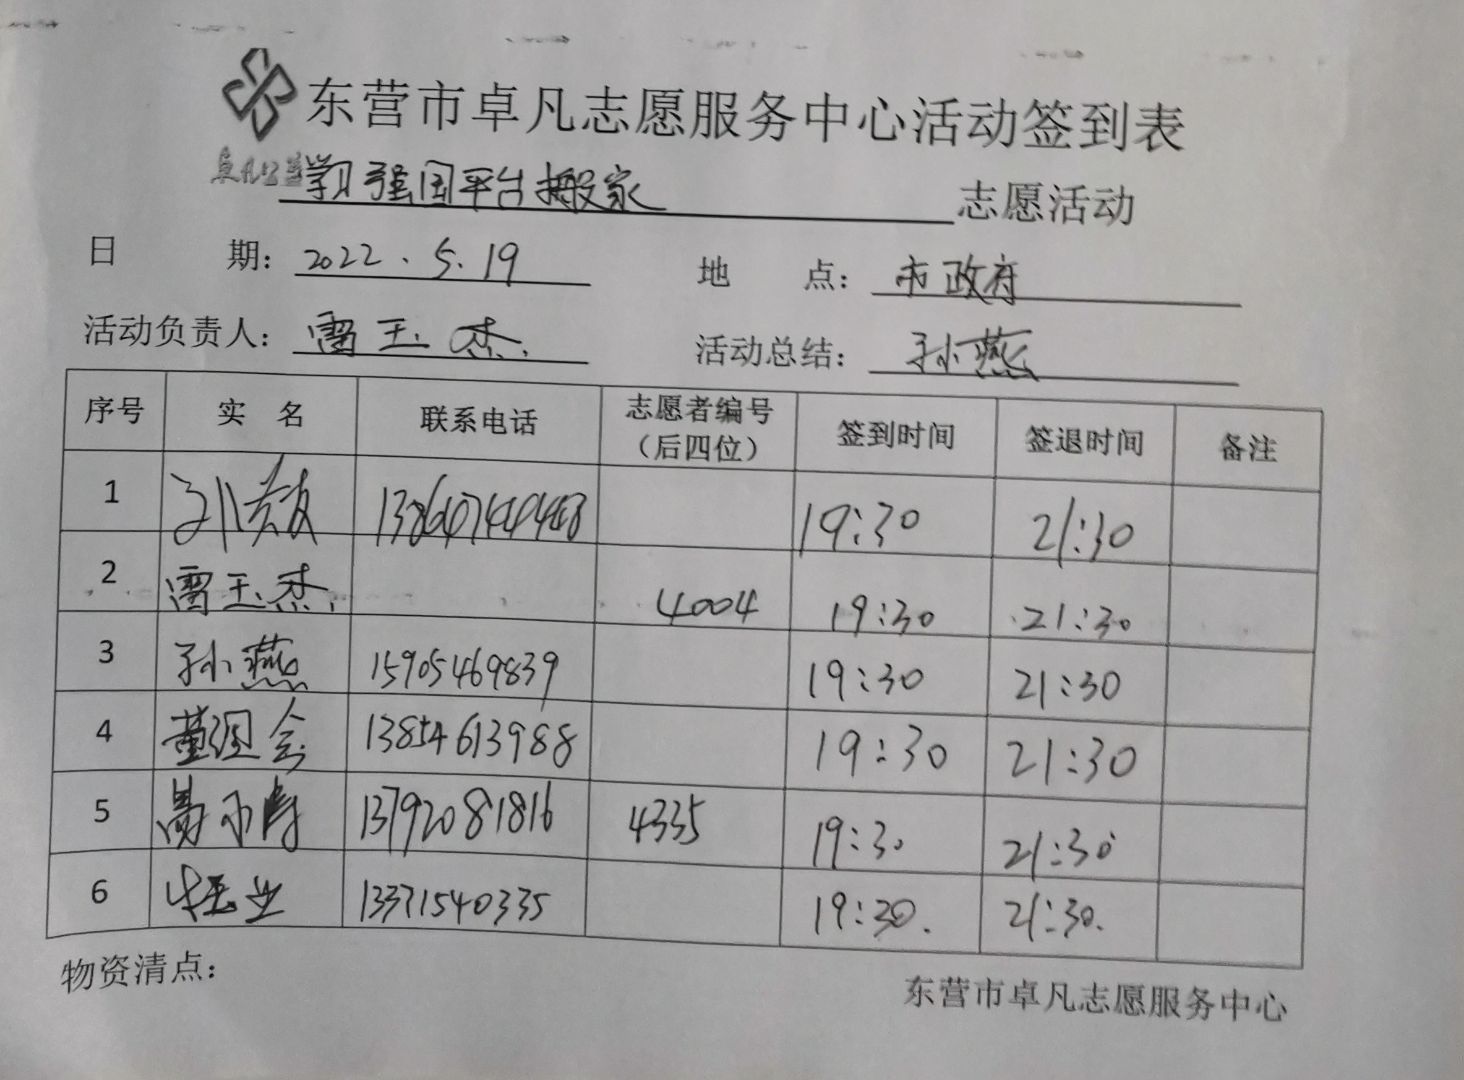 东营市卓凡志愿服务中心活动签到表
卓凡公益
学习强国平台搬家 志愿活动
日 期: 2022.5.19 地 点: 市政府
活动负责人: 雷玉杰 活动总结: 孙燕
序号 实 名 联系电话 志愿者编号(后四位) 签到时间 签退时间 备注
1 19:30 21:30
2 雷玉杰 4004 19:30 21:30
3 孙燕 15905469839 19:30 21:30
4 13854613988 19:30 21:30
5 13792081816 4335 19:30 21:30
6 13371540335 19:30. 21:30.
物资清点:
东营市卓凡志愿服务中心